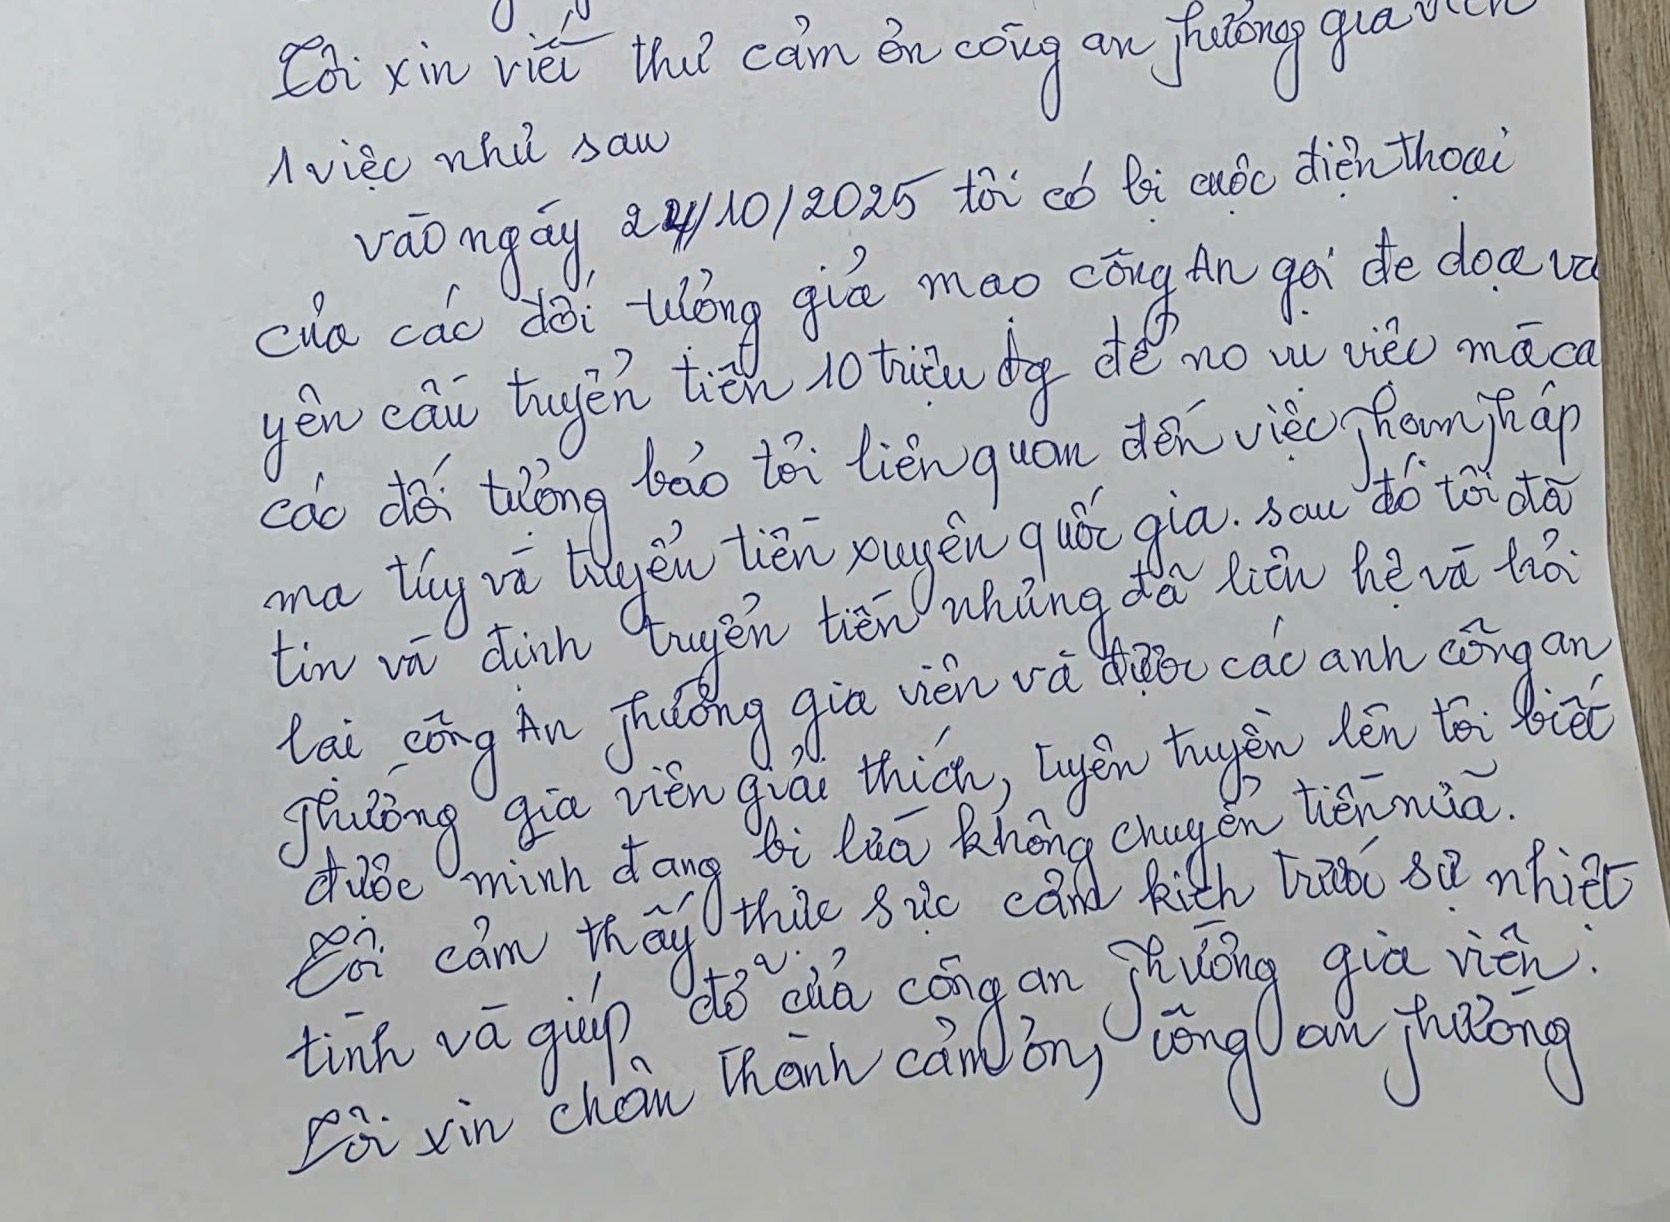 Tôi xin viết thư cảm ơn công an phường gia viên
1 việc như sau
vào ngày 24/10/2025 tôi có bị cuộc điện thoại
của các đối tượng giả mạo công An gọi đe dọa và
yên cầu truyển tiền 10 triệu để no vu việc mà ca
các đối tượng bảo tôi liên quan đến việc phạm pháp
ma túy và truyển tiền xuyên quốc gia. sau đó tôi đã
tin và định truyển tiền nhưng đã liên hệ và hỏi
lại công An phường gia viên và được các anh công an
phường gia viên giải thích, tuyên truyền lên tôi biết
được mình đang bị lừa không chuyển tiền nữa.
Tôi cảm thấy thực sực cảm kích trước sự nhiệt
tình và giúp đỡ của công an phường gia viên.
Tôi xin chân thành cảm ơn, công an phường